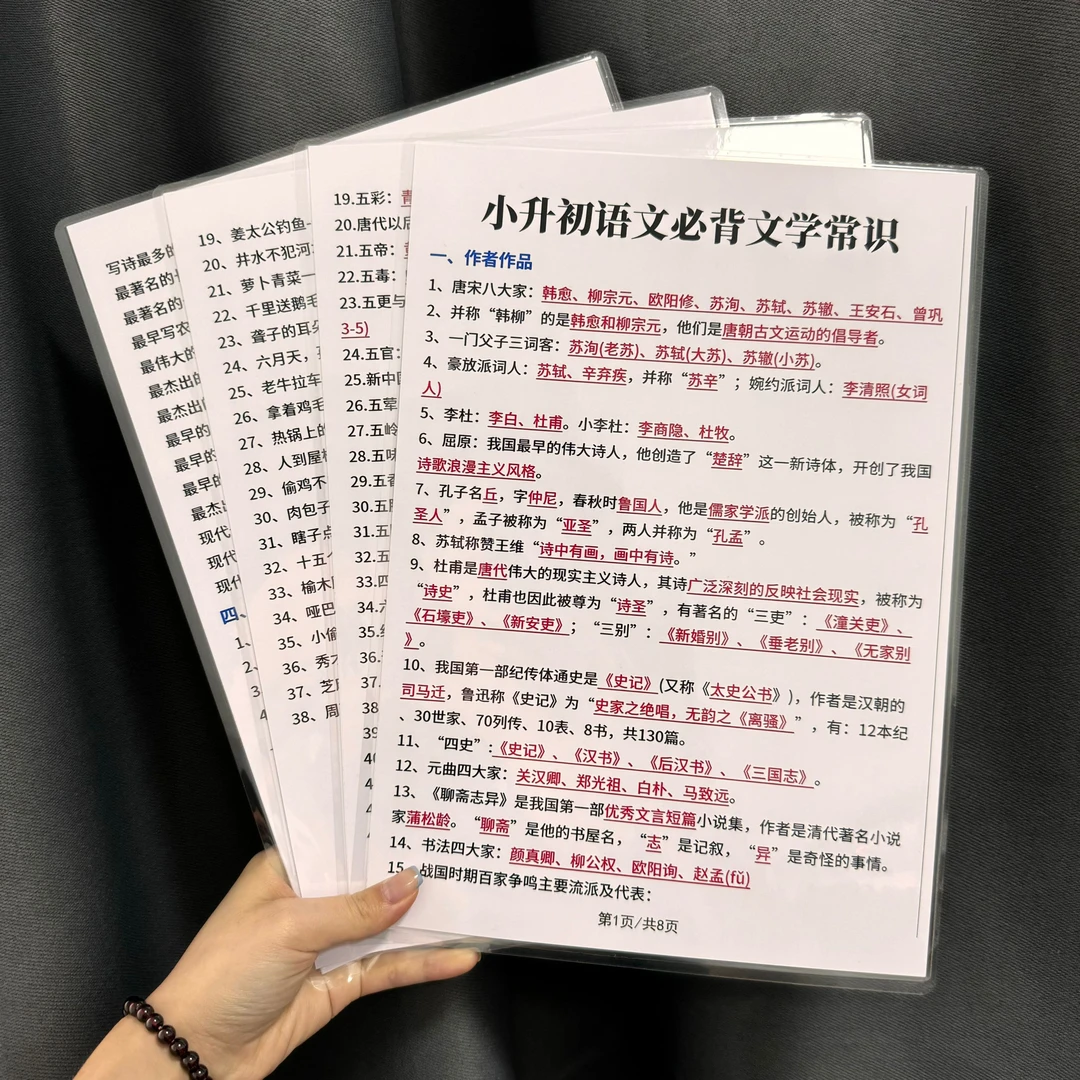 小升初语文必背文学常识
一、作者作品
1、唐宋八大家：韩愈、柳宗元、欧阳修、苏洵、苏轼、苏辙、王安石、曾巩
2、并称“韩柳”的是韩愈和柳宗元，他们是唐朝古文运动的倡导者。
3、一门父子三词客：苏洵(老苏)、苏轼(大苏)、苏辙(小苏)。
4、豪放派词人：苏轼、辛弃疾，并称“苏辛”；婉约派词人：李清照(女词
人)
5、李杜：李白、杜甫。小李杜：李商隐、杜牧。
6、屈原：我国最早的伟大诗人，他创造了“楚辞”这一新诗体，开创了我国
诗歌浪漫主义风格。
7、孔子名丘，字仲尼，春秋时鲁国人，他是儒家学派的创始人，被称为“孔
圣人”，孟子被称为“亚圣”，两人并称为“孔孟”。
8、苏轼称赞王维“诗中有画，画中有诗。”
9、杜甫是唐代伟大的现实主义诗人，其诗广泛深刻的反映社会现实，被称为
“诗史”，杜甫也因此被尊为“诗圣”，有著名的“三吏”：《潼关吏》、
《石壕吏》、《新安吏》；“三别”：《新婚别》、《垂老别》、《无家别
》。
10、我国第一部纪传体通史是《史记》(又称《太史公书》)，作者是汉朝的
司马迁，鲁迅称《史记》为“史家之绝唱，无韵之《离骚》”，有：12本纪
、30世家、70列传、10表、8书，共130篇。
11、“四史”：《史记》、《汉书》、《后汉书》、《三国志》。
12、元曲四大家：关汉卿、郑光祖、白朴、马致远。
13、《聊斋志异》是我国第一部优秀文言短篇小说集，作者是清代著名小说
家蒲松龄。“聊斋”是他的书屋名，“志”是记叙，“异”是奇怪的事情。
14、书法四大家：颜真卿、柳公权、欧阳询、赵孟(fǔ)
15、战国时期百家争鸣主要流派及代表：
第1页/共8页
19.五彩：青
20.唐代以后
21.五帝：
22.五毒：
23.五更与
3-5)
24.五官：
25.新中国
26.五荤
27.五岭
28.五味
29.五香
30.五
31.五
32.五
33.四
34.六
35.
36.
37.
38
39
40
4
4
4
19、姜太公钓鱼
20、井水不犯河
21、萝卜青菜
22、千里送鹅毛
23、聋子的耳朵
24、六月天，
25、老牛拉车
26、拿着鸡毛
27、热锅上的
28、人到屋
29、偷鸡不
30、肉包子
31、瞎子点
32、十五个
33、榆木
34、哑巴
35、小偷
36、秀才
37、芝麻
38、周
写诗最多的
最著名的
最著名的
最早写农
最伟大的
最杰出的
最杰出的
最早的
最早的
最早的
最杰出
现代
现代
现代
四、
1、
2、
3
4